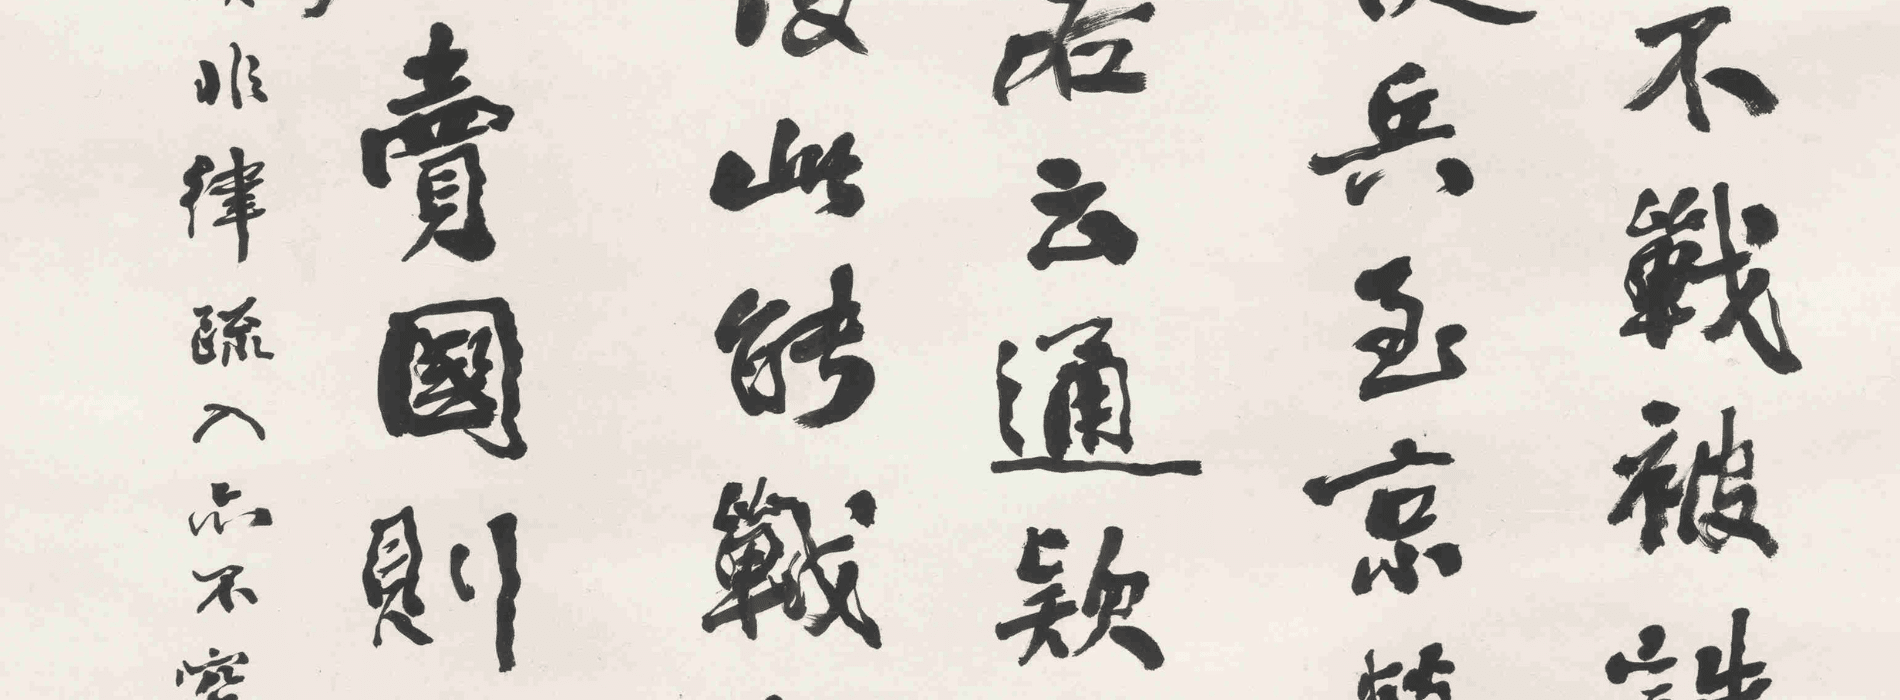 不戰被誅
兵至京
若云通款
此能戰
賣國則
非律疏入亦不